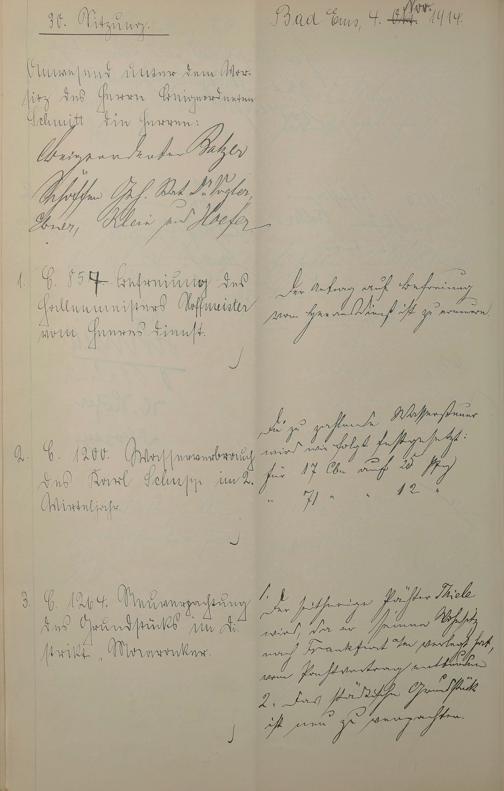 30. Sitzung.
Bad Ems, 4. Okt. Nov. 1914.
Anwesend unter dem Vor-
sitz des Herrn Beigeordneten
Schmitt die Herren:
Beigeordneter Balzer
Schöffen Geh. Rat Dr. Vogler,
Ebner, Klein und Hoefer
1. C. 857 Befreiung des
Hallenmeisters Hoffmeister
vom Heeresdienst.
Der Antrag auf Befreiung
vom Heeresdienst ist zu erneuern
2. C. 1200. Wasserverbrauch
des Karl Schupp im 2.
Vierteljahr.
Die zu zahlende Wassersteuer
wird wie folgt festgesetzt:
für 17 Cbm auf 25 Pfg
" 71 " " 12 "
3. C. 1264. Neuverpachtung
des Grundstücks im Di-
strikt
1. Der seitherige Pächter Thiele
wird, da er seinen Wohnsitz
nach Frankfurt a/m verlegt hat,
vom Pachtvertrag entbunden
2. Das städtische Grundstück
ist neu zu verpachten.